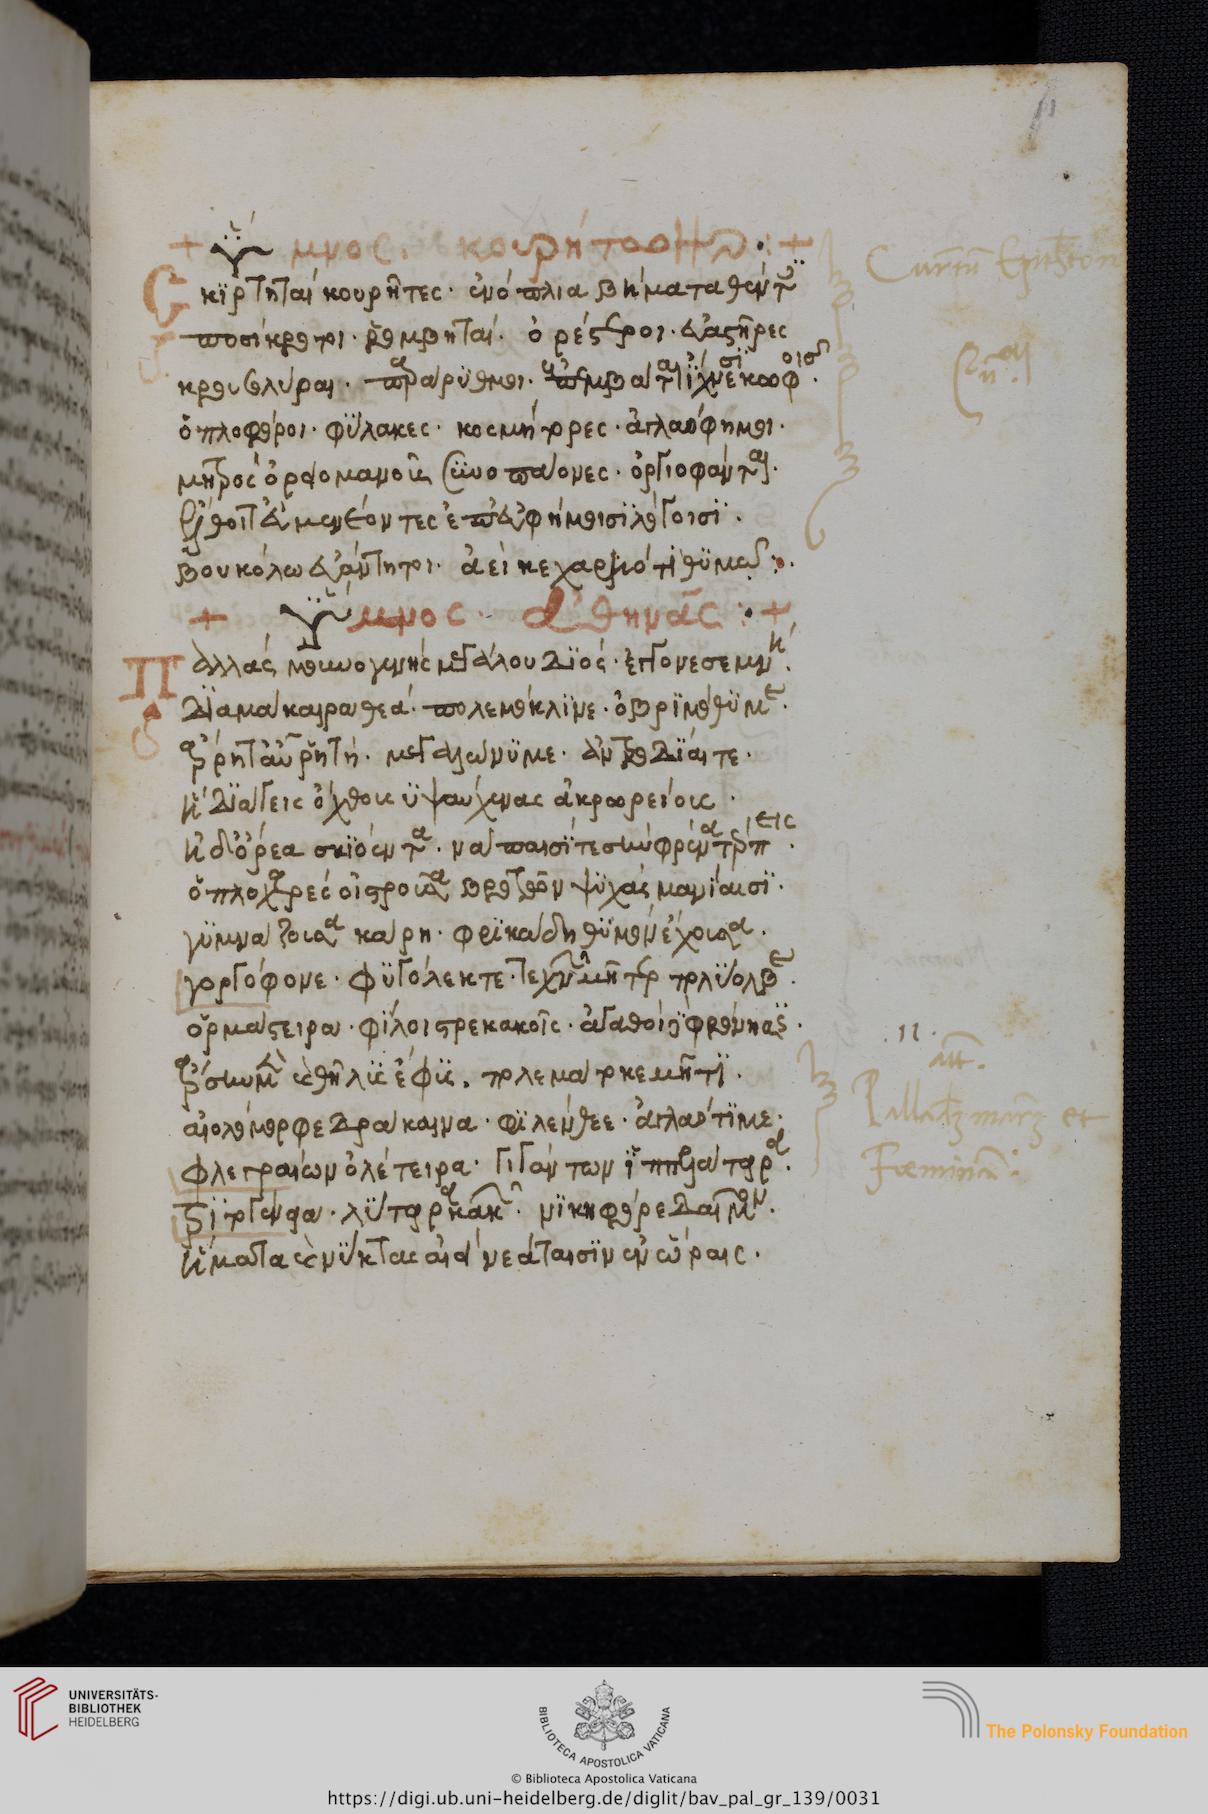 + Ὕμνος. κουρήτων : +
Σκιρτηταὶ κουρῆτες· ἐνόπλια βήματα θέντες
ποσίκροτοι· ῥομβηταί· ὀρέστεροι· εὐαστῆρες
κρουσιλύραι· παράρυθμοι· ἐπεμβάται ἴχνεσι κούφοις.
ὁπλοφόροι· φύλακες· κοσμήτορες· ἀγλαόφημοι·
μητρὸς ὀρειομανοῦς συνοπάονες· ὀργιοφάνται.
ἔλθοιτ' εὐμενέοντες ἐπ' εὐφήμοισι λόγοισι.
βουκόλω εὐάντητοι· ἀεὶ κεχαρηότι θυμῶ :.
+ Ὕμνος ἀθηνᾶς : +
Παλλὰς μουνογενὴς μεγάλου Διὸς· ἔκγονε σεμνή.
δῖα μάκαιρα θεά· πολεμόκλονε· ὀβριμόθυμε.
ἄρρητ' αὖ ῥητή· μεγαλώνυμε· ἀντροδίαιτε.
ἣ διάγεις ὄχθοις ὑψαύχενας ἀκρωρείοις.
ἠδ' ὄρεα σκιόεντα· νάπαισί τε σὴν φρένα τέρπεις.
ὁπλοχαρὲς οἰστροῦσα βροτῶν ψυχὰς μανίαισι.
γυμνάζουσα κάρη· φρικώδη θυμὸν ἔχουσα.
γοργοφόνε· φυγόλεκτρε· τεχνῶν μῆτερ πολύολβε.
ὁρμάστειρα· φίλοιστρε κακοῖς· ἀγαθοῖς φρόνησις.
ἄρσην μὲν καὶ θῆλυς ἔφυς. πολεματόκε μῆτι.
αἰολόμορφε δράκαινα· φιλένθεε· ἀγλαότιμε.
φλεγραίων ὀλέτειρα· Γιγάντων ἱππελάτειρα.
τριτογένεια· λύτειρα κακῶν· νικηφόρε δαῖμον.
ἤματα καὶ νύκτας αἰεὶ νεάταισιν ἐν ὥραις.
11.
Pallas mars et
Fœmina
UNIVERSITÄTS-
BIBLIOTHEK
HEIDELBERG
BIBLIOTECA APOSTOLICA VATICANA
The Polonsky Foundation
© Biblioteca Apostolica Vaticana
https://digi.ub.uni-heidelberg.de/diglit/bav_pal_gr_139/0031